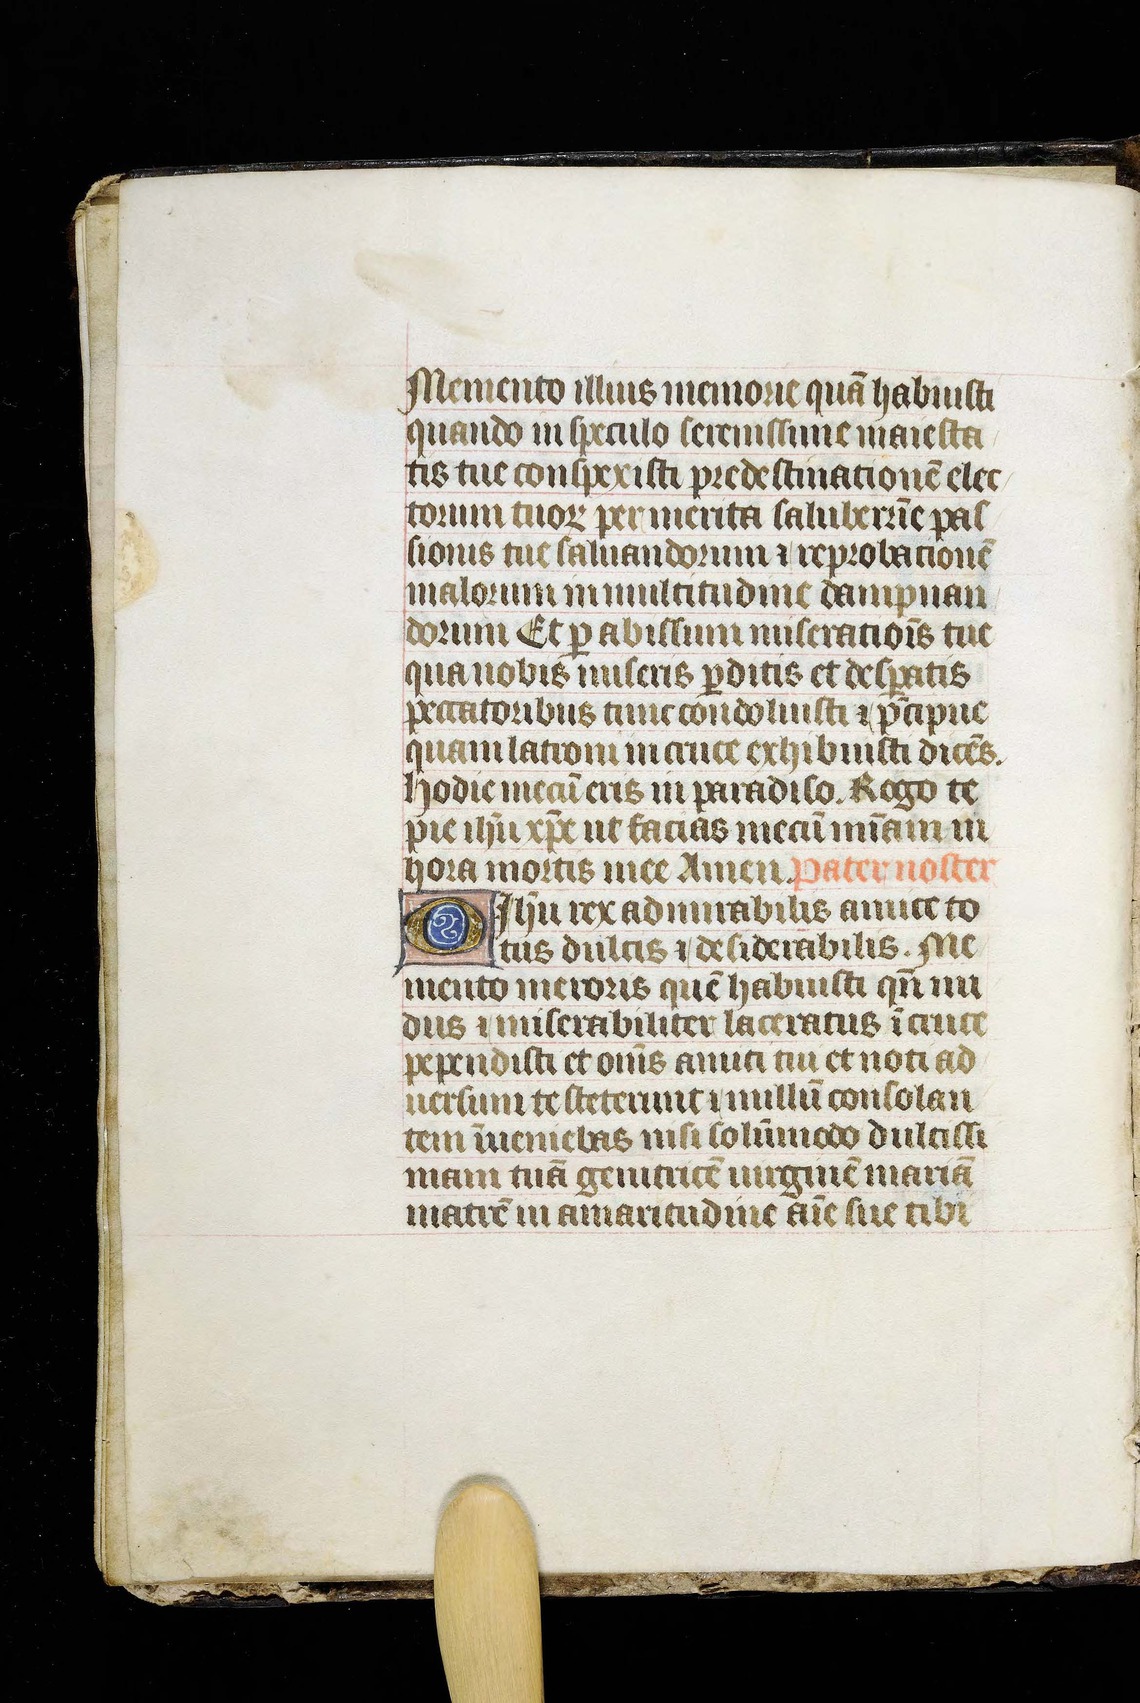 Memento illius memorie quā habuisti
quando in speculo serenissime maiesta
tis tue conspexisti predestinationē elec
torum tuoꝝ per merita saluberrīe pas
sionis tue saluandorum ⁊ reprobacionē
malorum in multitudine dampnan
dorum Et ꝑ abissum miseratiōis tue
qua nobis miseris ꝑditis et desꝑatis
peccatoribus tunc condoluisti ⁊ p̄cipue
quam latroni in cruce exhibuisti dicēs.
hodie mecū eris in paradiso. Rogo te
pie ih̄u xp̄e ut facias mecū mīam in
hora mortis mee Amen. Pater noster
O Ih̄u rex admirabilis amice to
tus dulcis ⁊ desiderabilis. Me
mento meroris quē habuisti qn̄ nu
dus ⁊ miserabiliter laceratus ī cruce
pependisti et om̄s amici tui et noti ad
uersum te steterunt ⁊ nullū consolan
tem īueniebas nisi solūmodo dulcissi
mam tuā genitricē uirginē mariā
matrē in amaritudine aīe sue tibi